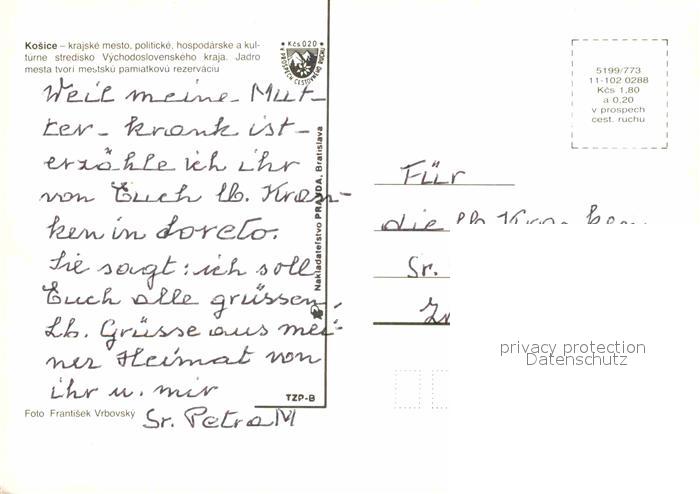 Košice – krajské mesto, politické, hospodárske a kul-
túrne stredisko Východoslovenského kraja. Jadro
mesta tvorí mestskú pamiatkovú rezerváciu
Weil meine Mut-
ter krank ist
erzähle ich ihr
von Euch lb. Kran-
ken in Loreto.
Sie sagt: ich soll
Euch alle grüssen.
Lb. Grüsse aus mei-
ner Heimat von
ihr u. mir
Sr. Petra M
Foto František Vrbovský
TZP-B
Nakladateľstvo PRAVDA, Bratislava
Kčs 0,20
V PROSPECH CESTOVNÉHO RUCHU
5199/773
11-102 0288
Kčs 1,80
a 0,20
v prospech
cest. ruchu
Für
die lb Kranken
Sr.
privacy protection
Datenschutz